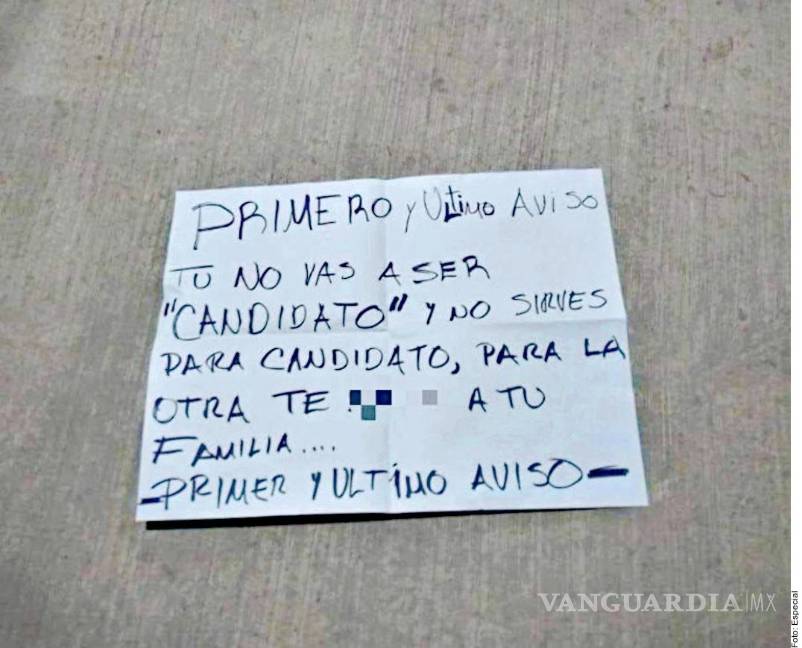 PRIMERO y Ultimo AViSO
TU NO VAS A SER
"CANDIDATO" Y NO SIRVES
PARA CANDIDATO, PARA LA
OTRA TE A TU
FAMILIA....
-PRIMER Y ULTIMO AVISO-
VANGUARDIA|MX
Foto: Especial